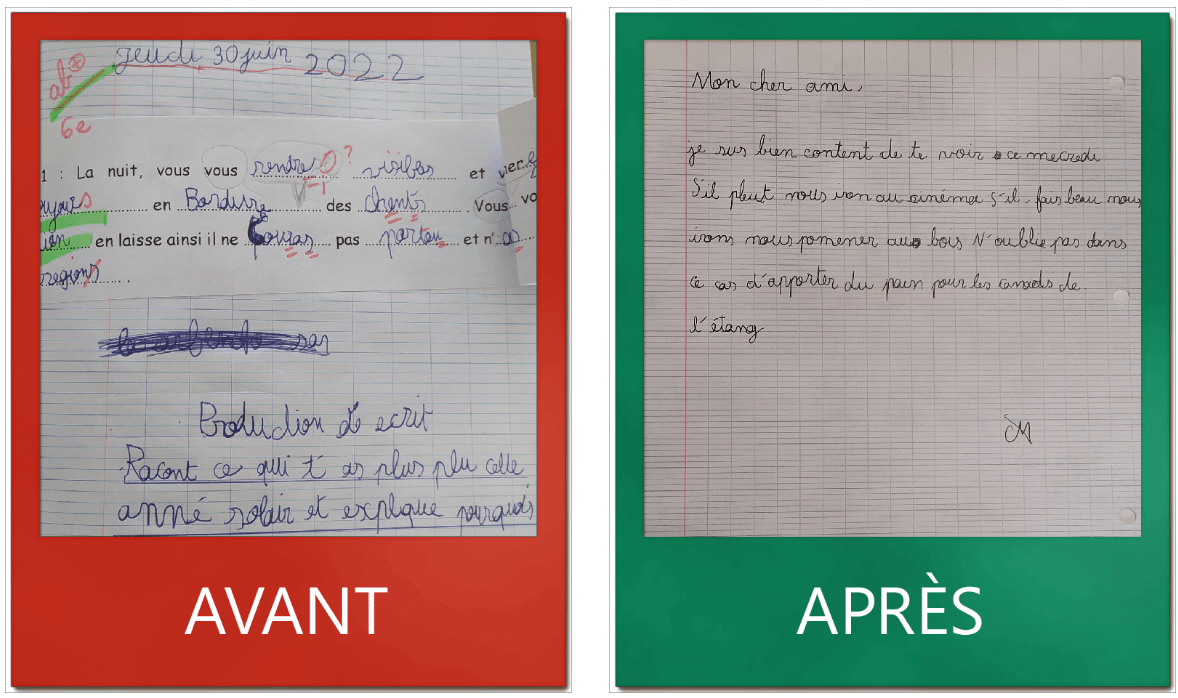 jeudi 30 juin 2022
ab
6e
1 : La nuit, vous vous rendres ? visibles et
en Bordure des chents . Vous vo
en laisse ainsi il ne pouras pas partou et n'as
regions .
Production d'ecrit
Racont ce qui t'as plus plu cette
anné solair et explique pourquois
AVANT
Mon cher ami,
je suis bien content de te voir ce mecredi
S'il pleut nous iron au cinémae S'il fais beau nous
irons nous pomener au bois N'oublie pas dans
ce cas d'apporter du pain pour les canads de
l'étang
M
APRÈS